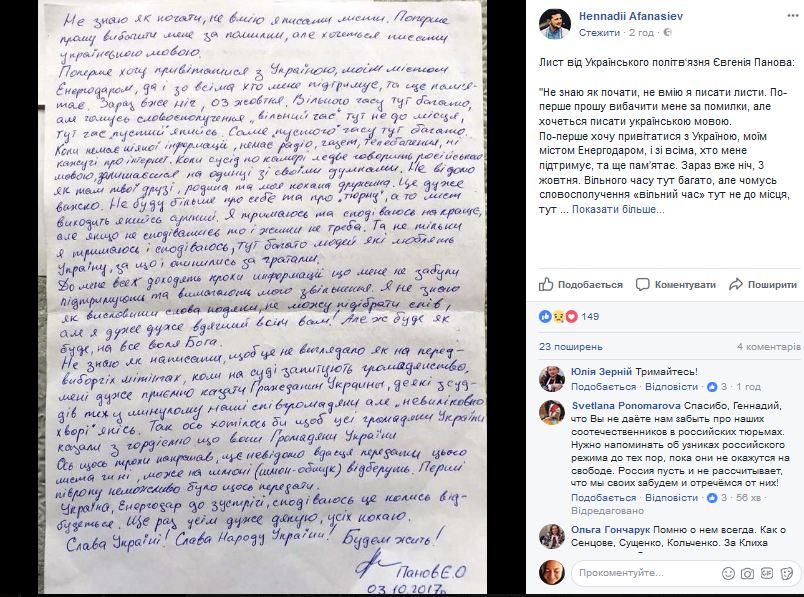 Не знаю як почати, не вмію я писати листи. Поперше
прошу вибачити мене за помилки, але хочеться писати
українською мовою.
Поперше хочу привітатися з Україною, моїм містом
Енергодаром, да і зо всіма хто мене підтримує, та ще памя-
тає. Зараз вже ніч, 03 жовтня. Вільного часу тут багато,
але чомусь словосполучення "вільний час" тут не до місця,
тут час пустий якийсь. Саме "пустого" часу тут багато.
Коли немає ніякої інформації, немає радіо, газет, телебачення, ні
кажучі про інтернет. Коли сусід по камері ледве говорить російською
мовою, залишаєшся на одинці зі своїми думками. Не відомо
як там твої друзі, родина та моя кохана дружина. Це дуже
важко. Не буду більше про себе та про "тюрму", а то лист
виходить якийсь сумний. Я тримаюсь та сподіваюсь на краще,
але якщо не сподіватись то і жити не треба. Та не тільки
я тримаюсь і сподіваюсь, тут багато людей які люблять
Україну, за що і опинились за гратами.
До мене все ж доходять крохи информації що мене не забули
підтримують та вимагають мого звільнення. Я не знаю
як висловити слова подяки, не можу підібрати слів,
але я дуже дуже вдячний всім вам! Але ж буде як
буде, на все воля Бога.
Не знаю як написати, щоб це не виглядало як на перед-
виборчіх мітінгах, коли на суді запитують громадянство,
мені дуже приємно казати Гражданин Украины, деякі з суд-
дів теж у минулому наші співгромадяни але "невиліковно
хворі" якісь. Так ось хотілось би щоб усі громадяни України
казали з гордістю що вони Громадяни України
Ось щось трохи написав, ще невідомо вдасця передати цього
листа чи ні, може на шмоні (шмон-обшук) відберуть. Перші
півроку неможливо було щось передати.
Україна, Енергодар до зустрічі, сподіваюсь це колись від-
будеться. Ще раз усім дуже дякую, усіх кохаю.
Слава Україні! Слава Народу України! Будем жить!
Панов Є.О
03.10.2017г.
Hennadii Afanasiev
Стежити · 2 год ·
Лист від Українського політв'язня Євгенія Панова:
"Не знаю як почати, не вмію я писати листи. По-
перше прошу вибачити мене за помилки, але
хочеться писати українською мовою.
По-перше хочу привітатися з Україною, моїм
містом Енергодаром, і зі всіма, хто мене
підтримує, та ще пам'ятає. Зараз вже ніч, 3
жовтня. Вільного часу тут багато, але чомусь
словосполучення «вільний час» тут не до місця,
тут ... Показати більше...
Подобається Коментувати Поширити
149
23 поширень 4 коментарів
Юлія Зерній Тримайтесь!
Подобається · Відповісти · 3 · 1 год
Svetlana Ponomarova Спасибо, Геннадий,
что Вы не даёте нам забыть про наших
соотечественников в российских тюрьмах.
Нужно напоминать об узниках российского
режима до тех пор, пока они не окажутся на
свободе. Россия пусть и не рассчитывает,
что мы своих забудем и отречёмся от них!
Подобається · Відповісти · 3 · 56 хв ·
Відредаговано
Ольга Гончарук Помню о нем всегда. Как о
Сенцове, Сущенко, Кольченко. За Клиха
Прокоментуйте...